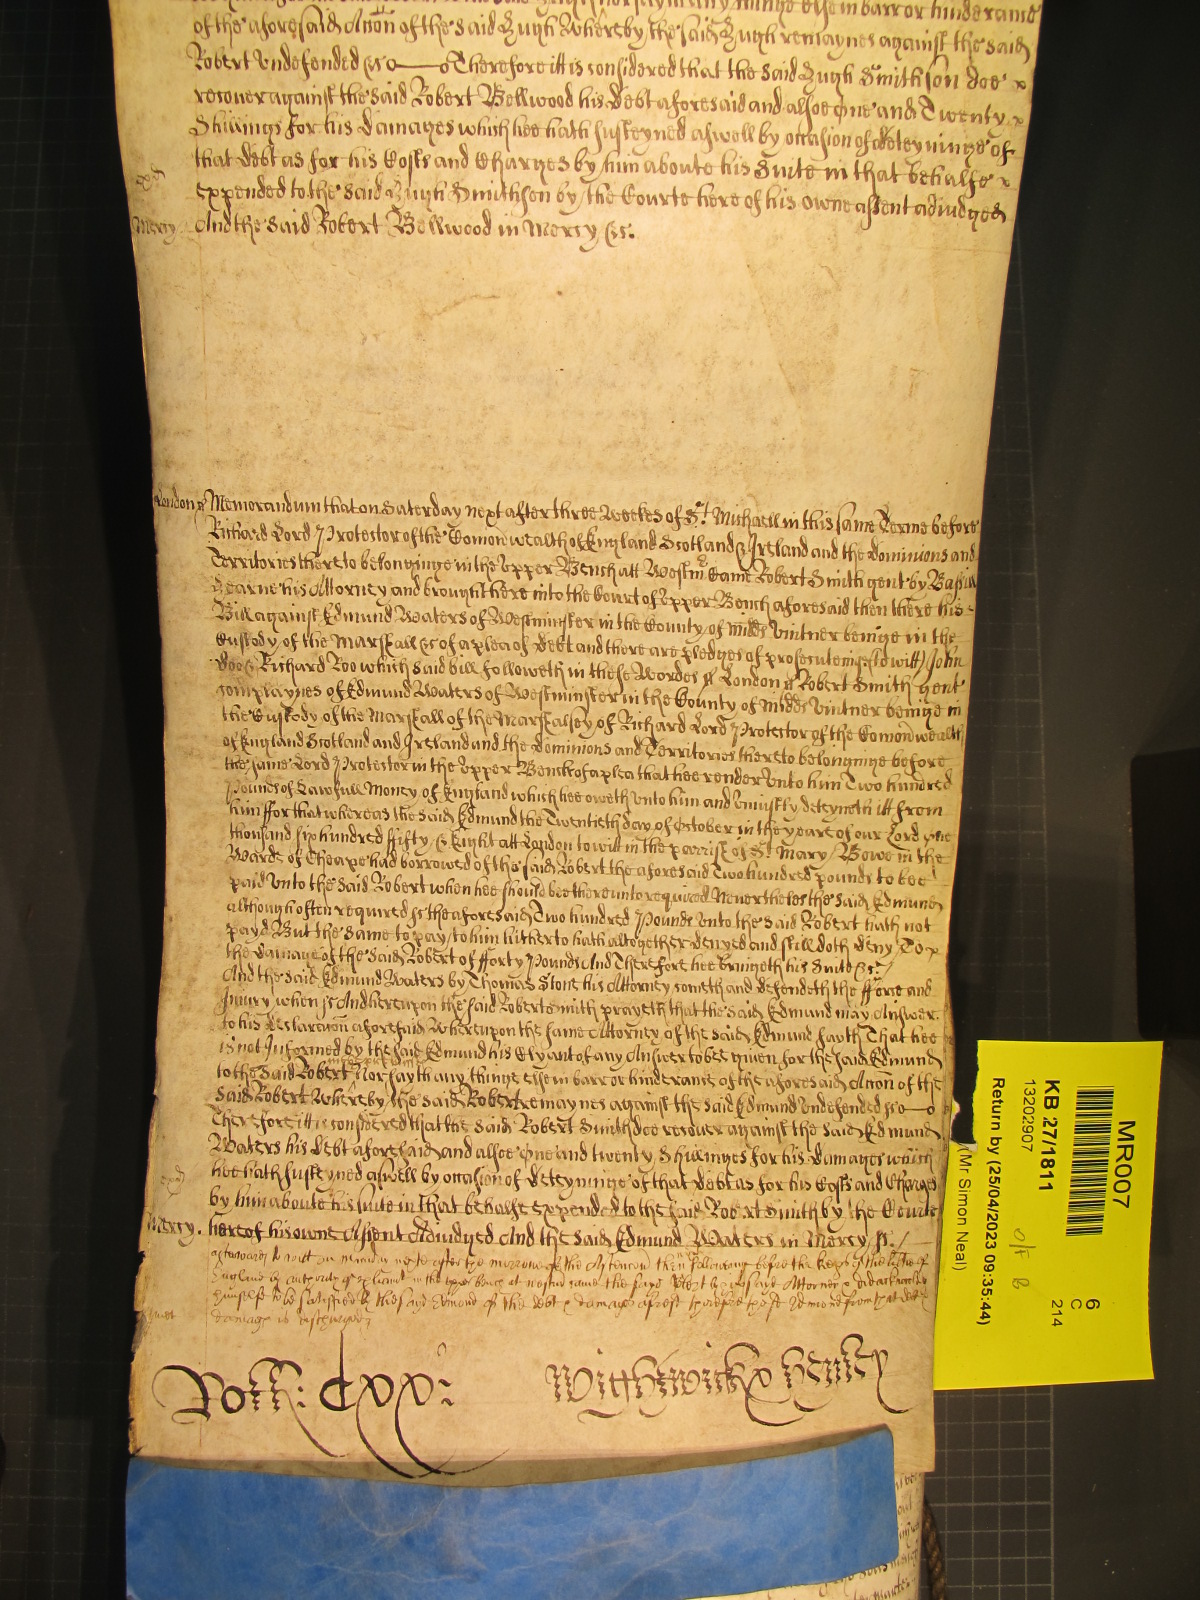 of the aforesaid Accon of the said Hugh Whereby the said Hugh remaynes against the said
Robert Undefended &c Therefore itt is considered that the said Hugh Smithson doe
recover against the said Robert Bellwood his debt aforesaid and alsoe One and Twenty
Shillings for his damages which hee hath susteyned aswell by occasion of deteyninge of
that debt as for his Costs and Charges by him aboute his Suite in that behalfe
expended to the said Hugh Smithson by the Courte here of his owne assent adiudged
Mercy. And the said Robert Bellwood in Mercy &c.
London ss Memorandum that on Saturday next after three Weekes of St. Michaell in this same Terme before
Richard Lord Protector of the Comonwealth of England Scotland & Ireland and the dominions and
Territories thereto belonginge in the Upper Bench att Westmr. Came Robert Smith gent by Basill
Hearne his Attorney and brought here into the Court of Upper Bench aforesaid then there his
Bill against Edmund Waters of Westminster in the County of Midds Vintner beinge in the
Custody of the Marshall &c of a plea of debt and there are pledges of prosecuteing (to witt) John
Doe & Richard Roo which said bill followeth in these Wordes ss London ss Robert Smith gent
complaynes of Edmund Waters of Westminster in the County of Midds Vintner beinge in
the Custody of the Marshall of the Marshalsey of Richard Lord Protector of the Comonwealth
of England Scotland and Ireland and the dominions and Territories thereto belonginge before
the same Lord Protector in the Upper Bench of a plea that hee render unto him Two hundred
Pounds of Lawfull Money of England which hee oweth unto him and uniustly deteyneth itt from
him ffor that whereas the said Edmund the Twentieth day of October in the yeare of our Lord One
thousand six hundred ffifty & Eight att London to witt in the parrish of St. Mary Bowe in the
Warde of Cheape had borrowed of the said Robert the aforesaid Two hundred pounds to bee
paid unto the said Robert when hee should bee thereunto required Neverthelesse the said Edmund
although often required &c the aforesaid Two hundred Pounds unto the said Robert hath not
payd But the same to pay to him hitherto hath altogether denyed and still doth deny To
the damage of the said Robert of fforty Pounds And Therefore hee bringeth his Suite &c.
And the said Edmund Waters by Thomas Stone his Attorney cometh and defendeth the fforce and
Iniury when &c And hereupon the said Robert Smith prayeth that the said Edmund may Answer
to his declaracon aforesaid Whereupon the same Attorney of the said Edmund sayth That hee
is not Informed by the said Edmund his Clyant of any Answer to bee given for the said Edmund
to the said Robert Nor sayth any thinge else in barr or hinderance of the aforesaid Accon of the
said Robert Whereby the said Robert remaynes against the said Edmund Undefended &c
Therefore itt is considered that the said Robert Smith doe recover against the said Edmund
Waters his debt aforesaid and alsoe One and twenty Shillinges for his damages which
hee hath susteyned aswell by occasion of deteyninge of that debt as for his Costs and Charges
by him aboute his suite in that behalfe expended to the said Robert Smith by the Courte
Mercy. here of his owne Assent Adiudged And the said Edmund Waters in Mercy &c.
afterwards to witt on next after the morrow of the Ascencon then following before the keeps of the libertie of
England by authority of Parliament in the upper Bench at Westmr came the sayd Robt by his sayd Attorney & did acknowledge
himselfe to be satisfied by the sayd Edmond of the debt & damages aforesd therefore the sd Edmond from that debt &
damages is discharged
Roll: CXX:
Wightwick & Henley
MR007
6
C
214
KB 27/1811
13202907
Return by (25/04/2023 09:35:44)
(Mr Simon Neal)